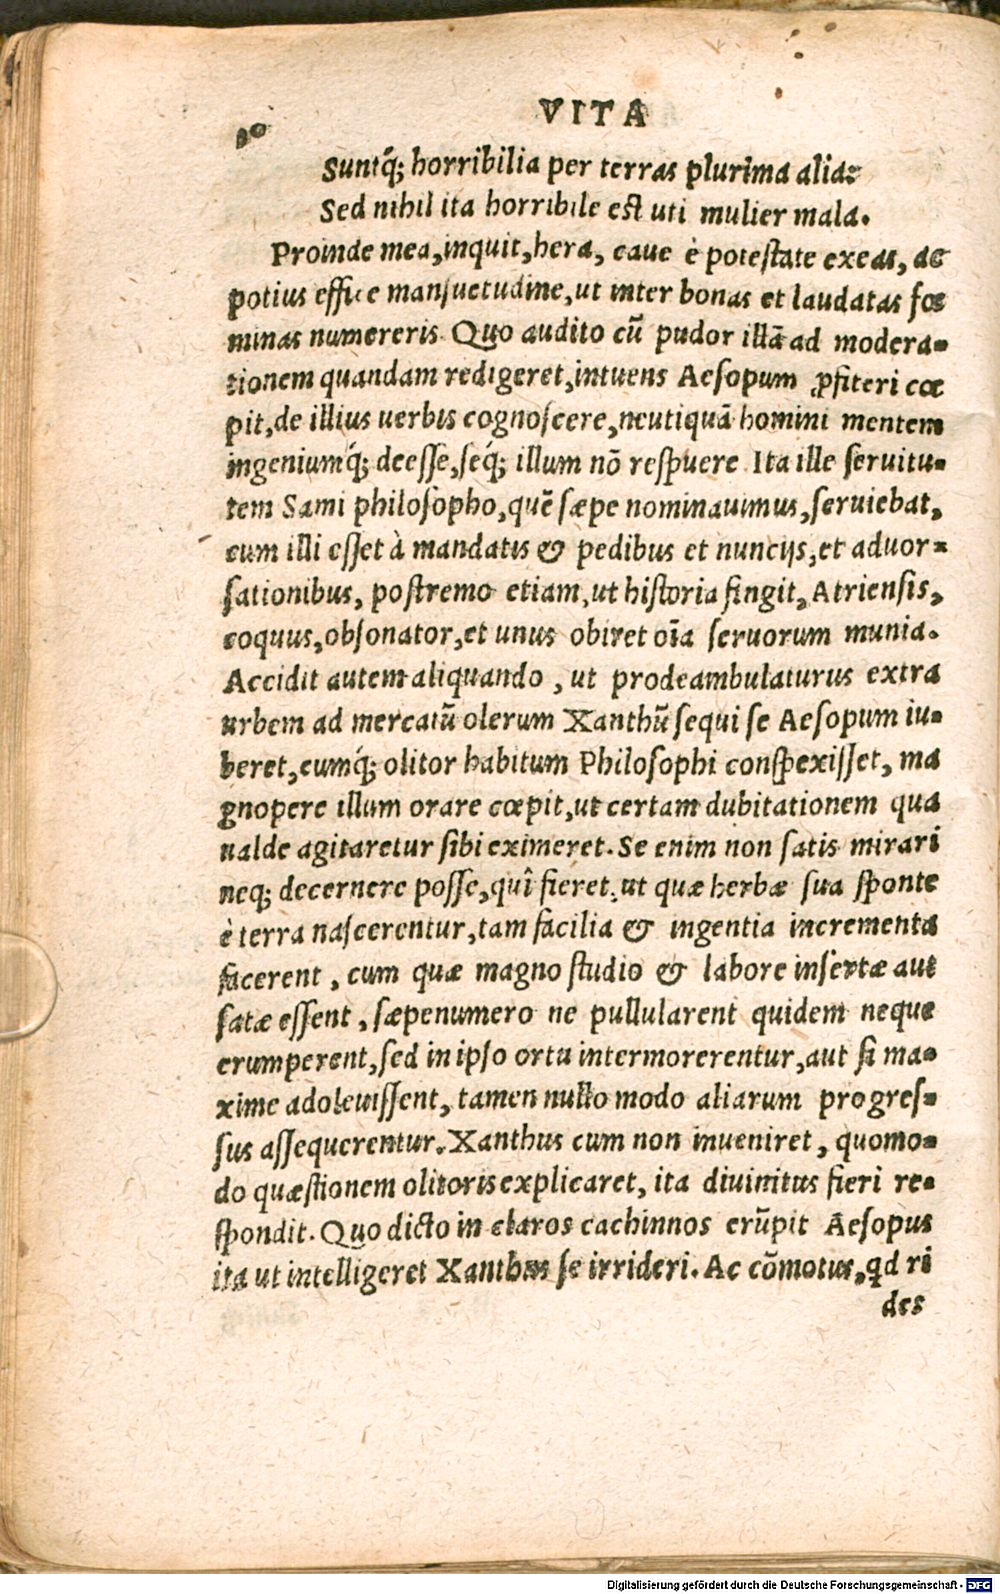 VITA
Suntq́; horribilia per terras plurima alia:
Sed nihil ita horribile est uti mulier mala.
Proinde mea, inquit, hera, caue è potestate exeas, ac
potius effice mansuetudine, ut inter bonas et laudatas foe
minas numereris. Quo audito cū pudor illā ad modera-
tionem quandam redigeret, intuens Aesopum ꝓfiteri cœ
pit, de illius uerbis cognoscere, neutiquā homini mentem
ingeniumq́; deesse, seq́; illum nō respuere. Ita ille seruitu-
tem Sami philosopho, quē sæpe nominauimus, seruiebat,
cum illi esset à mandatis & pedibus et nuncijs, et aduor-
sationibus, postremo etiam, ut historia fingit, Atriensis,
coquus, obsonator, et unus obiret oīa seruorum munia.
Accidit autem aliquando, ut prodeambulaturus extra
urbem ad mercatū olerum Xanthū sequi se Aesopum iu-
beret, cumq́; olitor habitum Philosophi conspexisset, ma
gnopere illum orare cœpit, ut certam dubitationem qua
ualde agitaretur sibi eximeret. Se enim non satis mirari
neq; decernere posse, quî fieret, ut quæ herbæ sua sponte
è terra nascerentur, tam facilia & ingentia incrementa
facerent, cum quæ magno studio & labore insertæ aut
satæ essent, sæpenumero ne pullularent quidem neque
erumperent, sed in ipso ortu intermorerentur, aut si ma-
xime adoleuissent, tamen nullo modo aliarum progres-
sus assequerentur. Xanthus cum non inueniret, quomo-
do quæstionem olitoris explicaret, ita diuinitus fieri re-
spondit. Quo dicto in claros cachinnos erūpit Aesopus
ita ut intelligeret Xanthus se irrideri. Ac cōmotus, qd ri
des
Digitalisierung gefördert durch die Deutsche Forschungsgemeinschaft - DFG